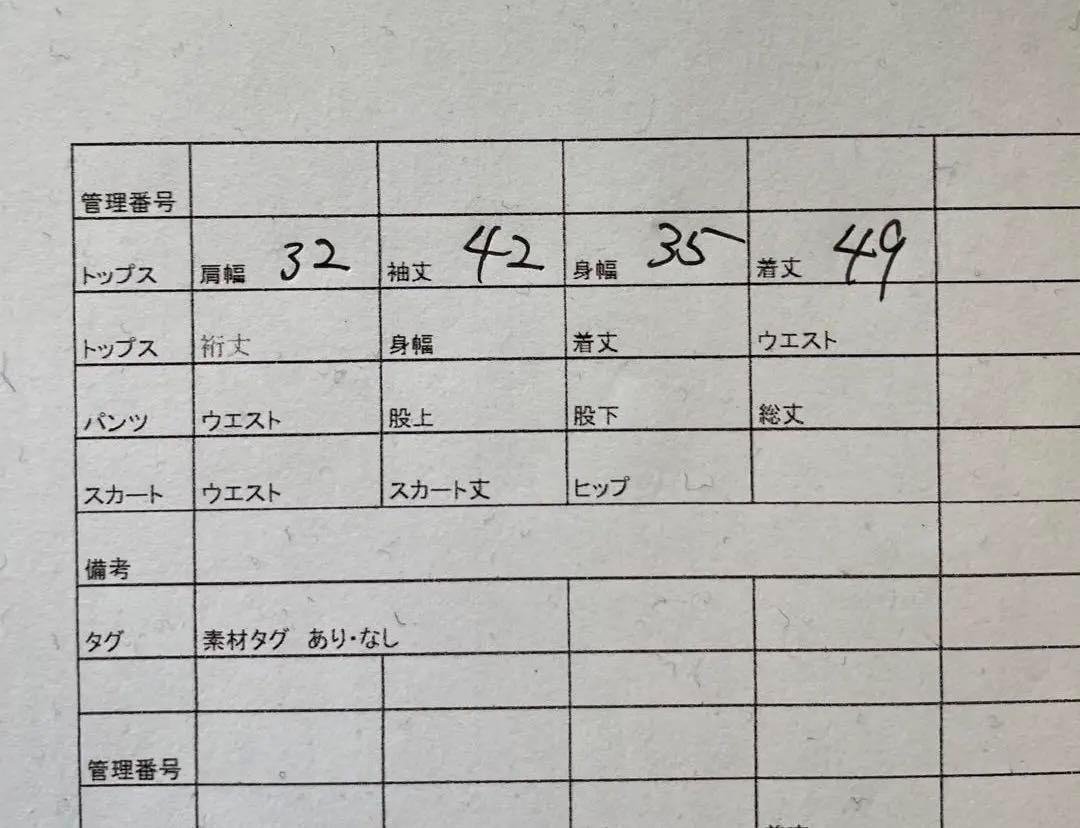 管理番号
トップス 肩幅 32 袖丈 42 身幅 35 着丈 49
トップス 裄丈 身幅 着丈 ウエスト
パンツ ウエスト 股上 股下 総丈
スカート ウエスト スカート丈 ヒップ
備考
タグ 素材タグ あり・なし
管理番号